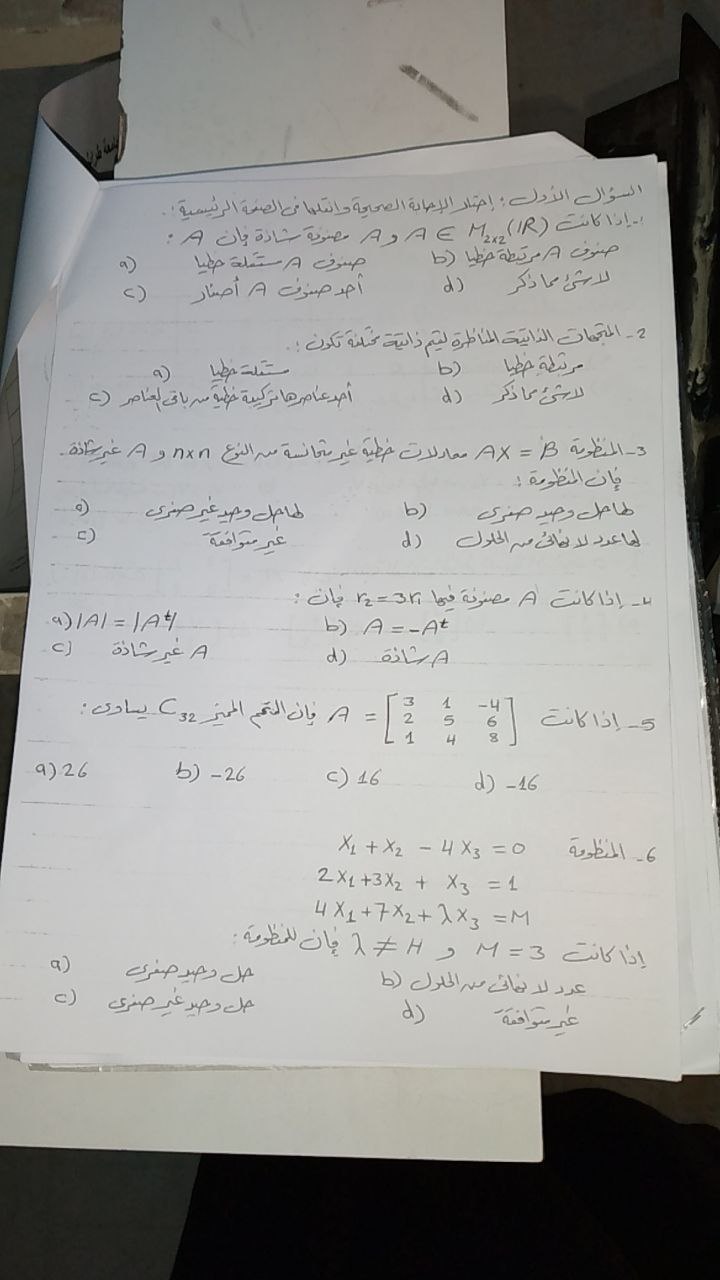 السؤال الأول: إختار الإجابة الصحيحة وانقلها في الصفحة الرئيسية:
1- إذا كانت A ∈ M₂ₓ₂(IR) و A مصفوفة شاذة فإن A:
a) صفوف A مستقلة خطيا b) صفوف A مرتبطة خطيا
c) أحد صفوف A أصفار d) لاشئ مما ذكر
2- المتجهات الذاتية المناظرة لقيم ذاتية مختلفة تكون:
a) مستقلة خطيا b) مرتبطة خطيا
c) أحد عناصرها تركيبة خطية من باقي العناصر d) لاشئ مما ذكر
3- المنظومة AX = B معادلات خطية غير متجانسة من النوع n×n و A غير شاذة.
فإن المنظومة:
a) لها حل وحيد غير صفري b) لها حل وحيد صفري
c) غير متوافقة d) لها عدد لا نهائي من الحلول
4- إذا كانت A مصفوفة فيها r₂=3r₁ فإن:
a) |A| = |Aᵗ| b) A = -Aᵗ
c) A غير شاذة d) A شاذة
5- إذا كانت A = [3 1 -4
2 5 6
1 4 8] فإن المتمم المميز C₃₂ يساوي:
a) 26 b) -26 c) 16 d) -16
6- المنظومة X₁ + X₂ - 4X₃ = 0
2X₁+3X₂ + X₃ = 1
4X₁+7X₂+ λX₃ = M
إذا كانت M = 3 و λ ≠ H فإن للمنظومة:
a) حل وحيد صفري b) عدد لا نهائي من الحلول
c) حل وحيد غير صفري d) غير متوافقة